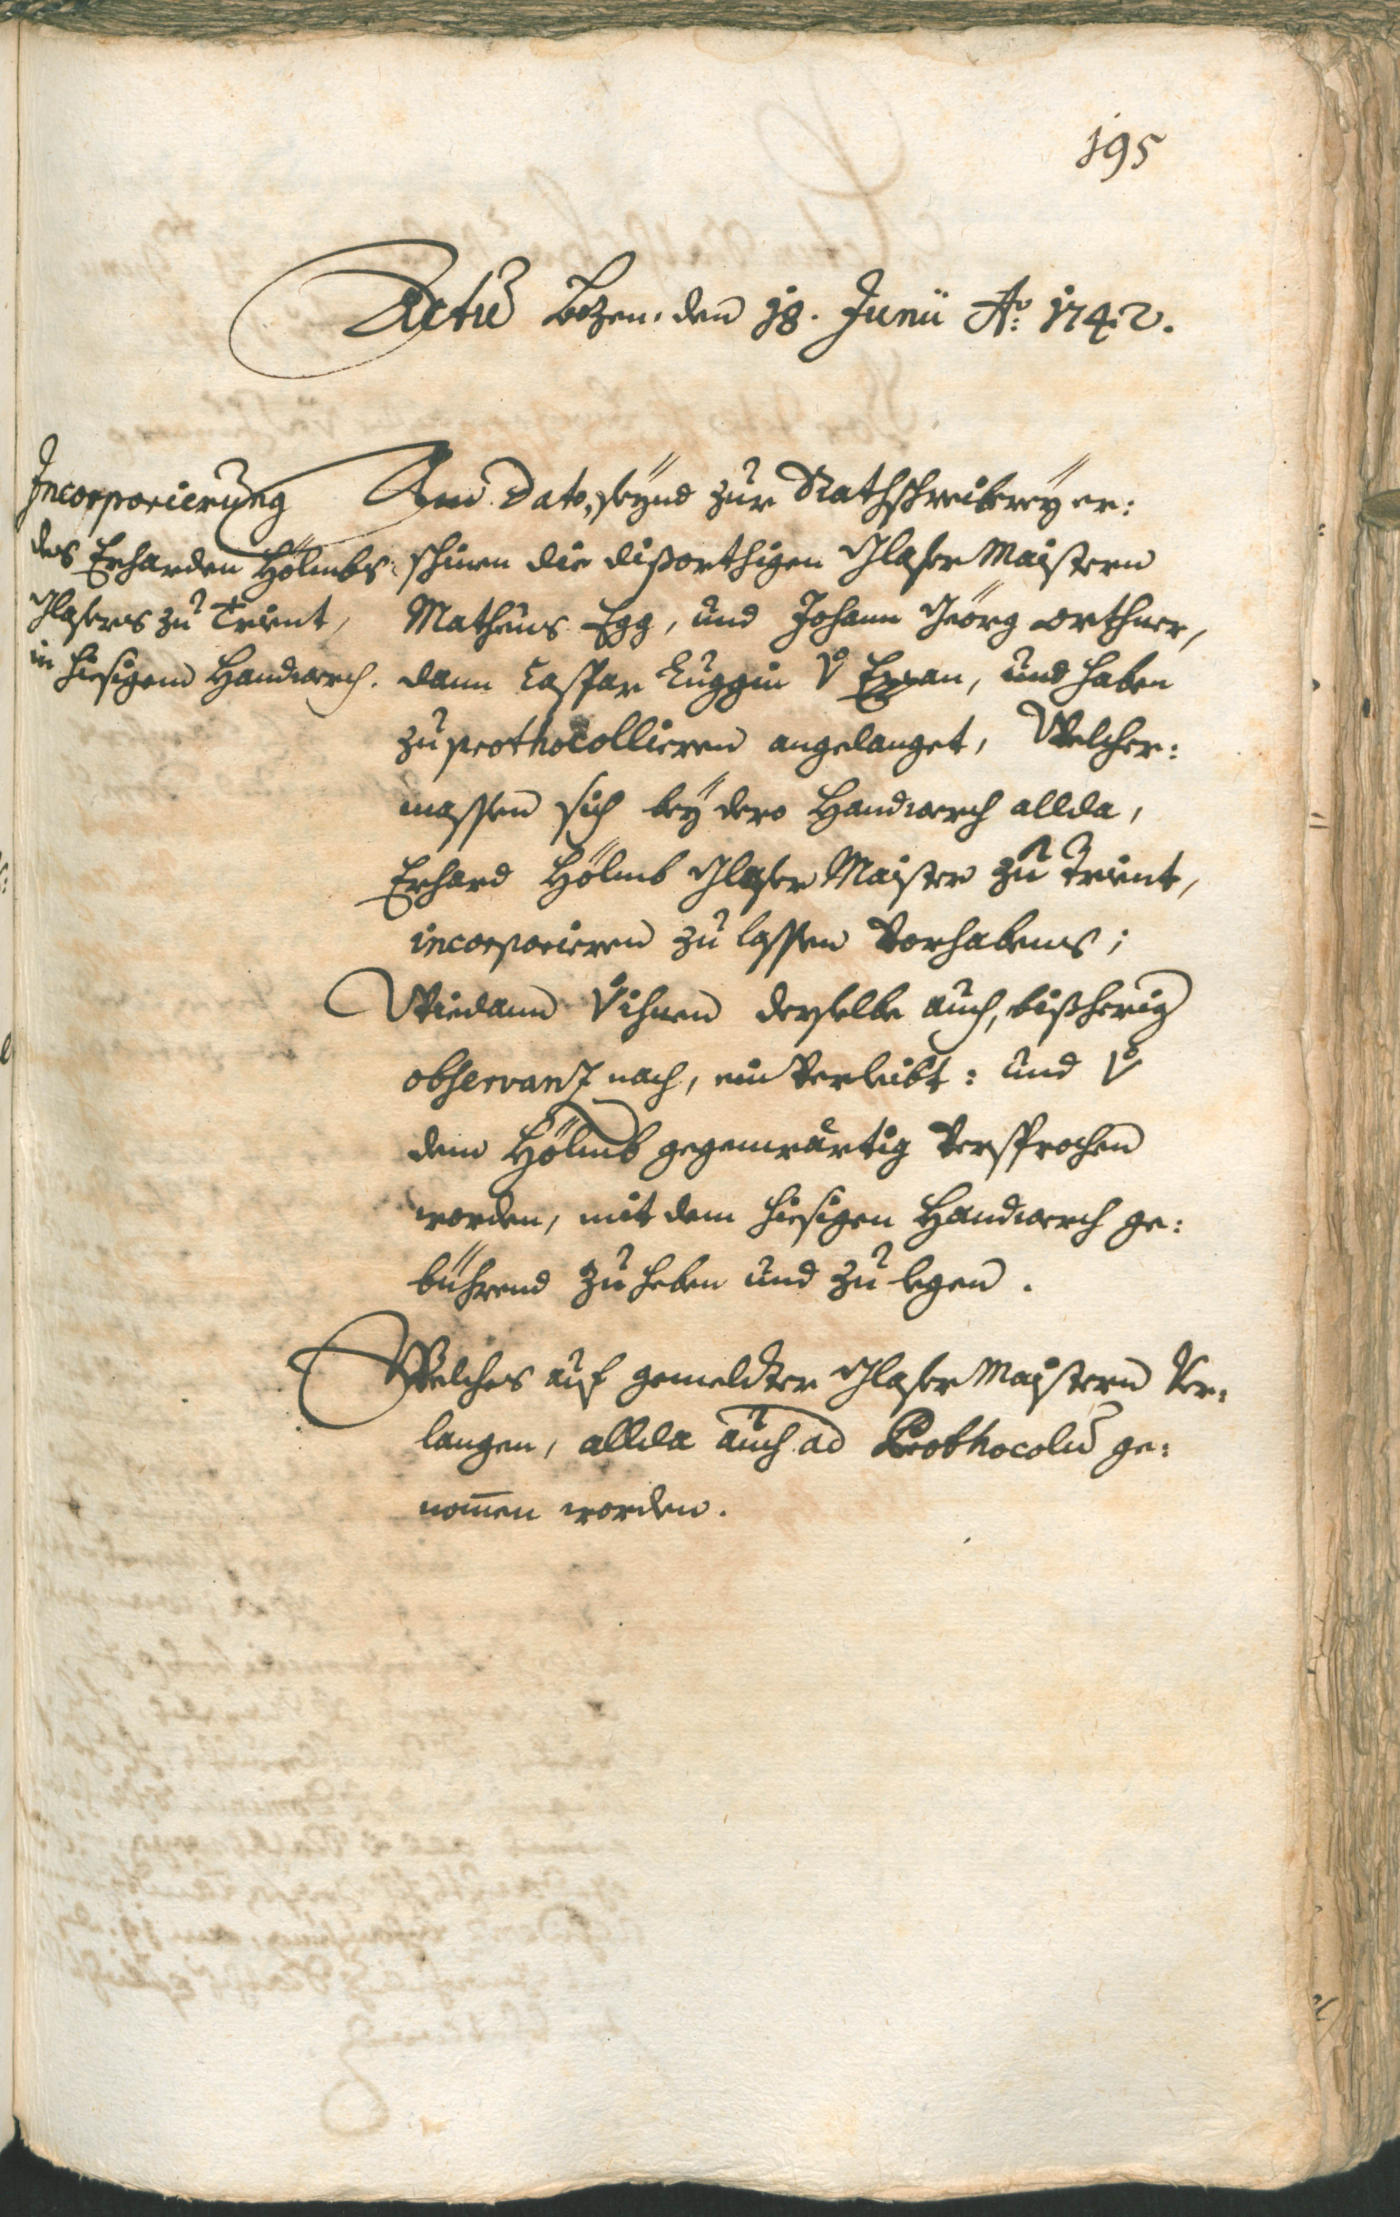 195
Actu̅ Bozen den 18. Junii Ao: 1742.
Incorporierung
des Erharden Hölmbs
Glasers zu Trient,
in hiesigem Handwerch.
Am Dato, seÿnd zur Rathschreibereÿ er:
schinen die dißorthigen Glaser Maistern
Matheus Egg, und Johann Geörg orthner,
dann Caspar Luggin v Eppan, und haben
zu prothocollieren angelanget, Welcher:
massen sich beÿ dero Handwerch allda,
Erhard Hölmb Glaser Maister zu Trient,
incorporieren zu lassen Vorhabens;
Wiedann v ihnen derselbe auch, bißherig
observanz nach, ein Verleibt: und v
dem Hölmb gegenwärtig Versprochen
worden, mit dem hiesigen Handwerch ge:
bührend zu heben und zu legen.
Welches auf gemeldter Glaser Maistern Ver:
langen, allda auch ad Prothocolu̅ ge:
nom̅en worden.